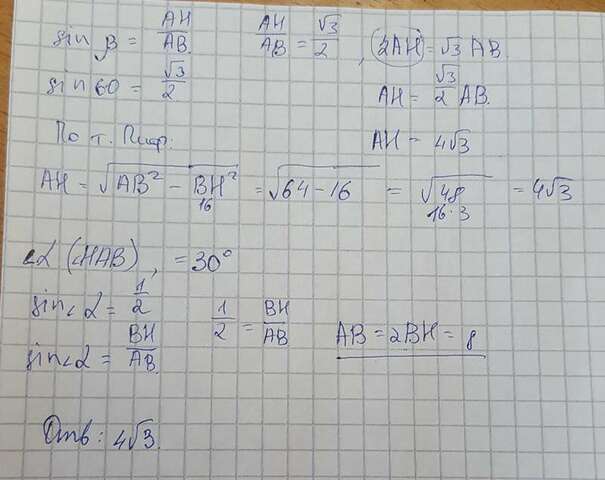 sin β = AH/AB   AH/AB = √3/2 , 2AH = √3 AB.
sin 60 = √3/2   AH = √3/2 AB.
По т. Пиф:   AH = 4√3
AH = √(AB² − BH²) = √(64 − 16) = √48 = 4√3
16   16·3
∠α (∠HAB), = 30°
sin∠α = 1/2   1/2 = BH/AB   AB = 2BH = 8
sin∠α = BH/AB.
Отв: 4√3.